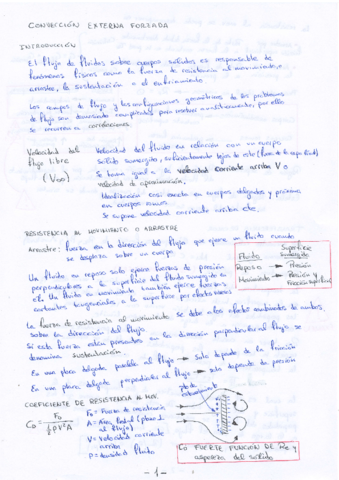 CONVECCIÓN EXTERNA FORZADA
INTRODUCCIÓN
El flujo de fluidos sobre cuerpos sólidos es responsable de
fenómenos físicos como la fuerza de resistencia al movimiento o
arrastre, la sustentación o el enfriamiento.
Los campos de flujo y las configuraciones geométricas de los problemas
de flujo son demasiado complicados para resolver analíticamente, por ello
se recurre a correlaciones.
Velocidad del flujo libre (V∞)
Velocidad del fluido en relación con un cuerpo
sólido sumergido, suficientemente lejos de este
Se toma igual a la velocidad corriente arriba V o
velocidad de aproximación.
Idealización casi exacta en cuerpos delgados y próxima
en cuerpos romos.
Se supone velocidad corriente arriba cte.
RESISTENCIA AL MOVIMIENTO O ARRASTRE
Arrastre: fuerza en la dirección del flujo que ejerce un fluido cuando
se desplaza sobre un cuerpo.
Un fluido en reposo solo ejerce fuerzas de presión
perpendiculares a la superficie del fluido sumergido en
él. Un fluido en movimiento también ejerce fuerzas
cortantes tangenciales a la superficie por efectos
Fluido
Superficie
Sumergido
Reposo → Presión
Movimiento → Presión y
Fricción superficie
La fuerza de resistencia al movimiento se debe a los efectos combinados de ambas
sobre la dirección del flujo.
Si esta fuerza están presentes en la dirección perpendicular al flujo se
denomina sustentación.
En una placa delgada paralela al flujo → Solo depende de la fricción
En una placa delgada perpendicular al flujo → solo depende de presión
COEFICIENTE DE RESISTENCIA AL MOV.
F_D = Fuerza de resistencia
A = Área frontal
al flujo)
V = Velocidad corriente
arriba
ρ = densidad fluido
C_D FUERTE FUNCIÓN DE Re y
aspereza del sólido
- 1 -